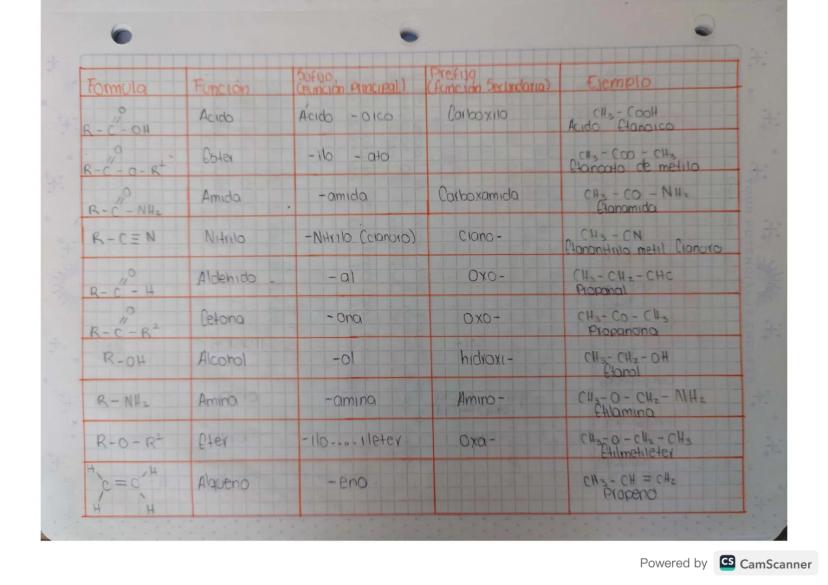 Formula Función Sufijo (Función Principal) Prefijo (Función Secundaria) Ejemplo
R-C(=O)-OH Acido Ácido -oico Carboxilo CH3-COOH
Acido Etanoico
R-C(=O)-O-R² Ester -ilo -ato CH3-COO-CH3
Etanoato de metilo
R-C(=O)-NH2 Amida -amida Carboxamida CH3-CO-NH2
Etanamida
R-C≡N Nitrilo -Nitrilo (cianuro) Ciano- CH3-CN
Etanonitrilo metil Cianuro
R-C(=O)-H Aldehido -al Oxo- CH3-CH2-CHC
Propanal
R-C(=O)-R² Cetona -ona Oxo- CH3-CO-CH3
Propanona
R-OH Alcohol -ol hidroxi- CH3-CH2-OH
Etanol
R-NH2 Amina -amina Amino- CH3-O-CH2-NH2
Etilamina
R-O-R² Eter -ilo....ileter Oxa- CH3-O-CH2-CH3
Etilmetileter
H H C=C H H Alqueno -eno CH3-CH=CH2
Propeno
Powered by CS CamScanner